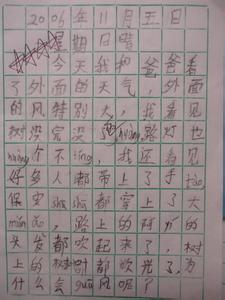 2006年11月五日
星期日晴
今天我和爸爸看
了外面的天气，外面
的风特别大，我看见
树没完没了 huàng，路灯也
huàng个不ting，我还看见
好多人都带上了手tào
保安shū shu都穿上了大
mián ǎo，路上的阿yí的
头发都吹起来了，树
上的树叶都吹光了，为
什么会guā风呢？